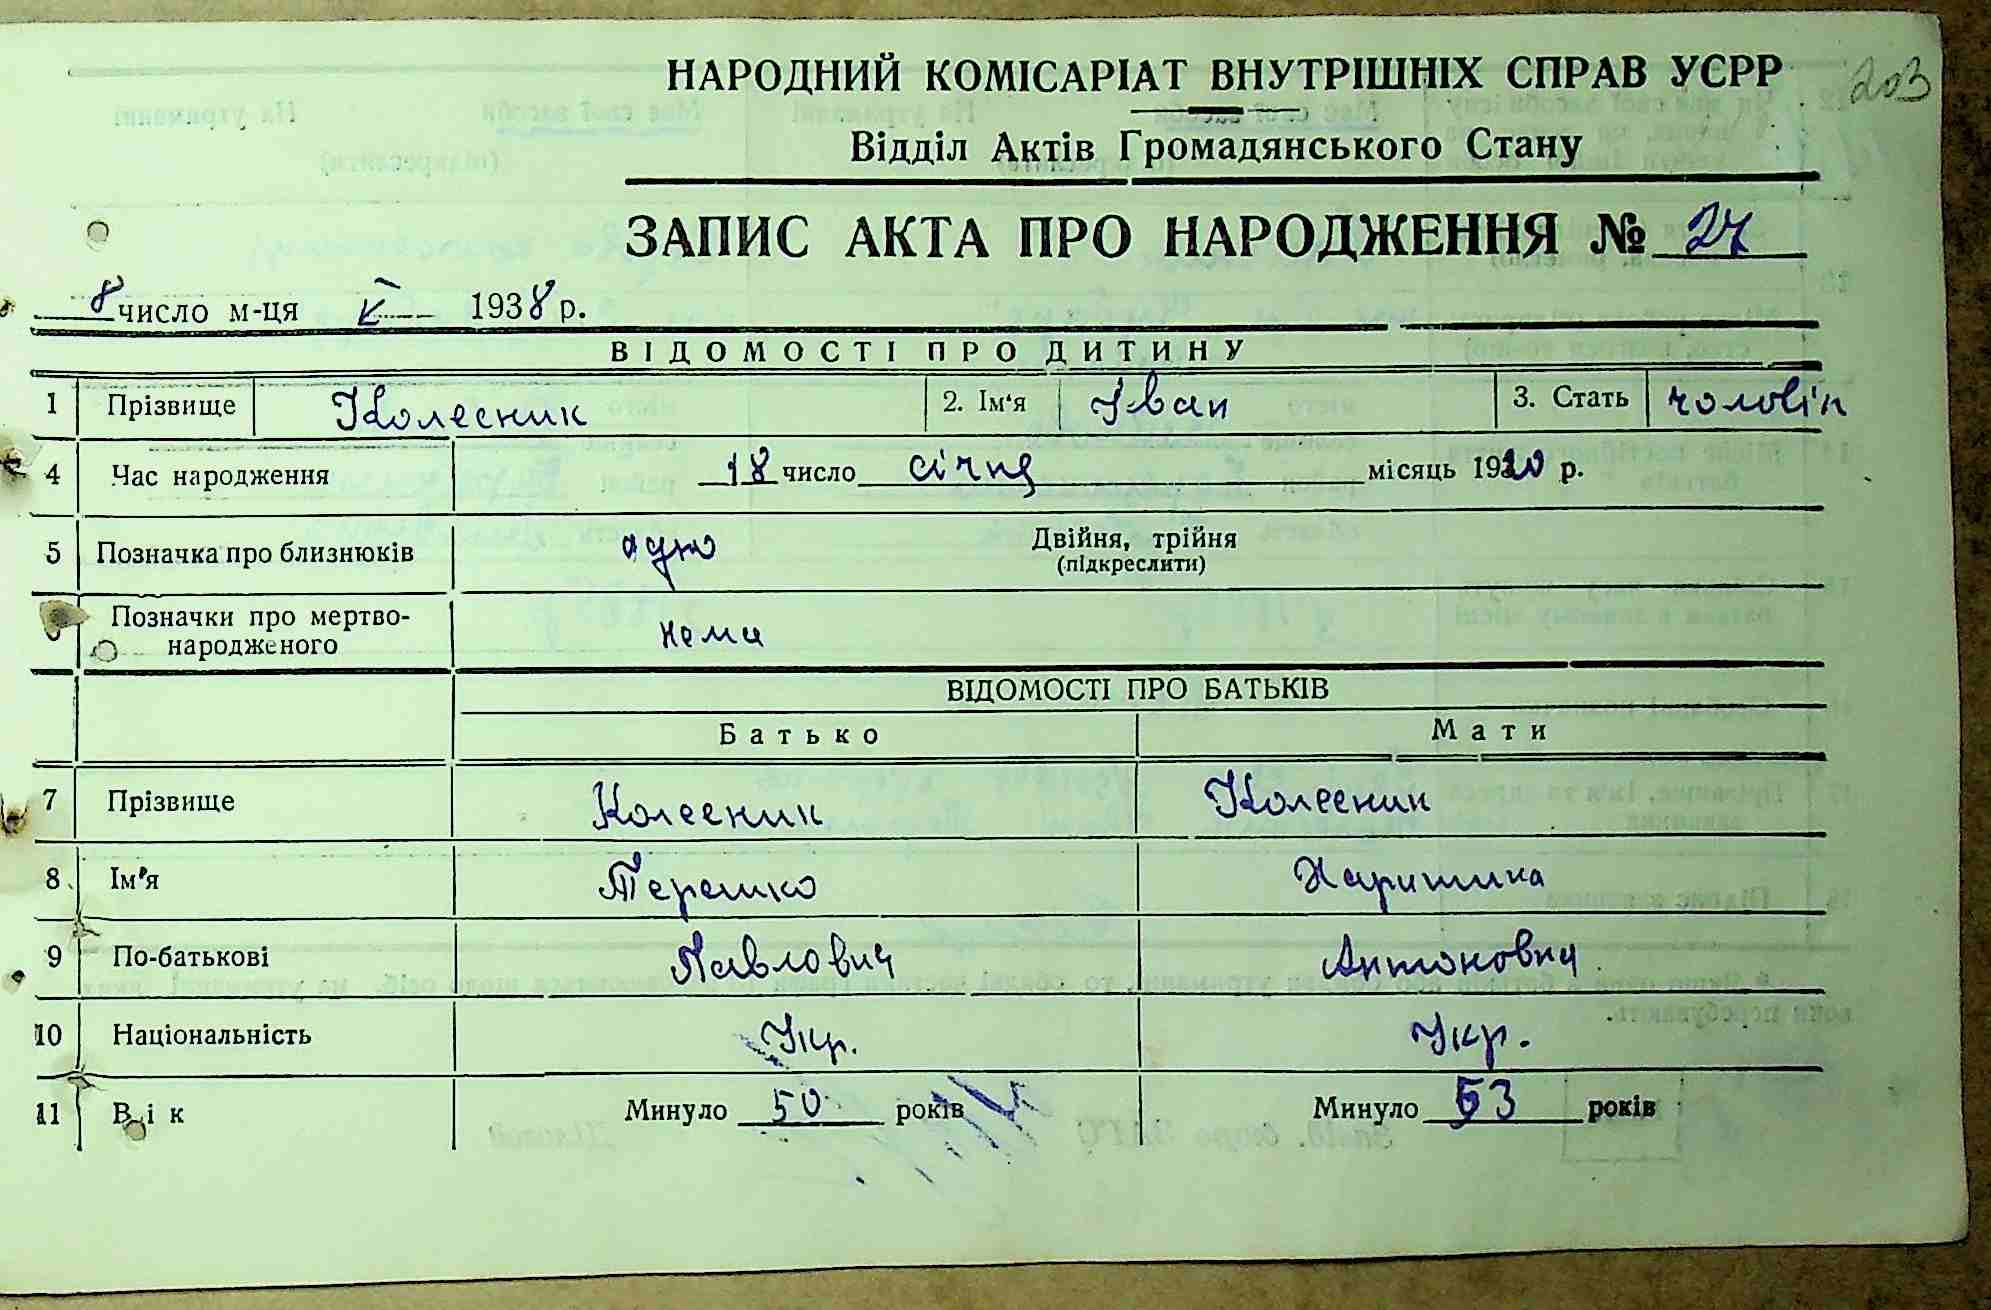 НАРОДНИЙ КОМІСАРІАТ ВНУТРІШНІХ СПРАВ УСРР 203
Відділ Актів Громадянського Стану
ЗАПИС АКТА ПРО НАРОДЖЕННЯ № 27
8 число м-ця 1938 р.
ВІДОМОСТІ ПРО ДИТИНУ
1 Прізвище Колесник 2. Ім'я Іван 3. Стать чоловіч
4 Час народження 18 число січня місяць 1920 р.
5 Позначка про близнюків одно Двійня, трійня
(підкреслити)
6 Позначки про мертво-
народженого нема
ВІДОМОСТІ ПРО БАТЬКІВ
Батько Мати
7 Прізвище Колесник Колесник
8 Ім'я Терешко Харитина
9 По-батькові Павлович Антоновна
10 Національність Укр. Укр.
11 Вік Минуло 50 років Минуло 53 років